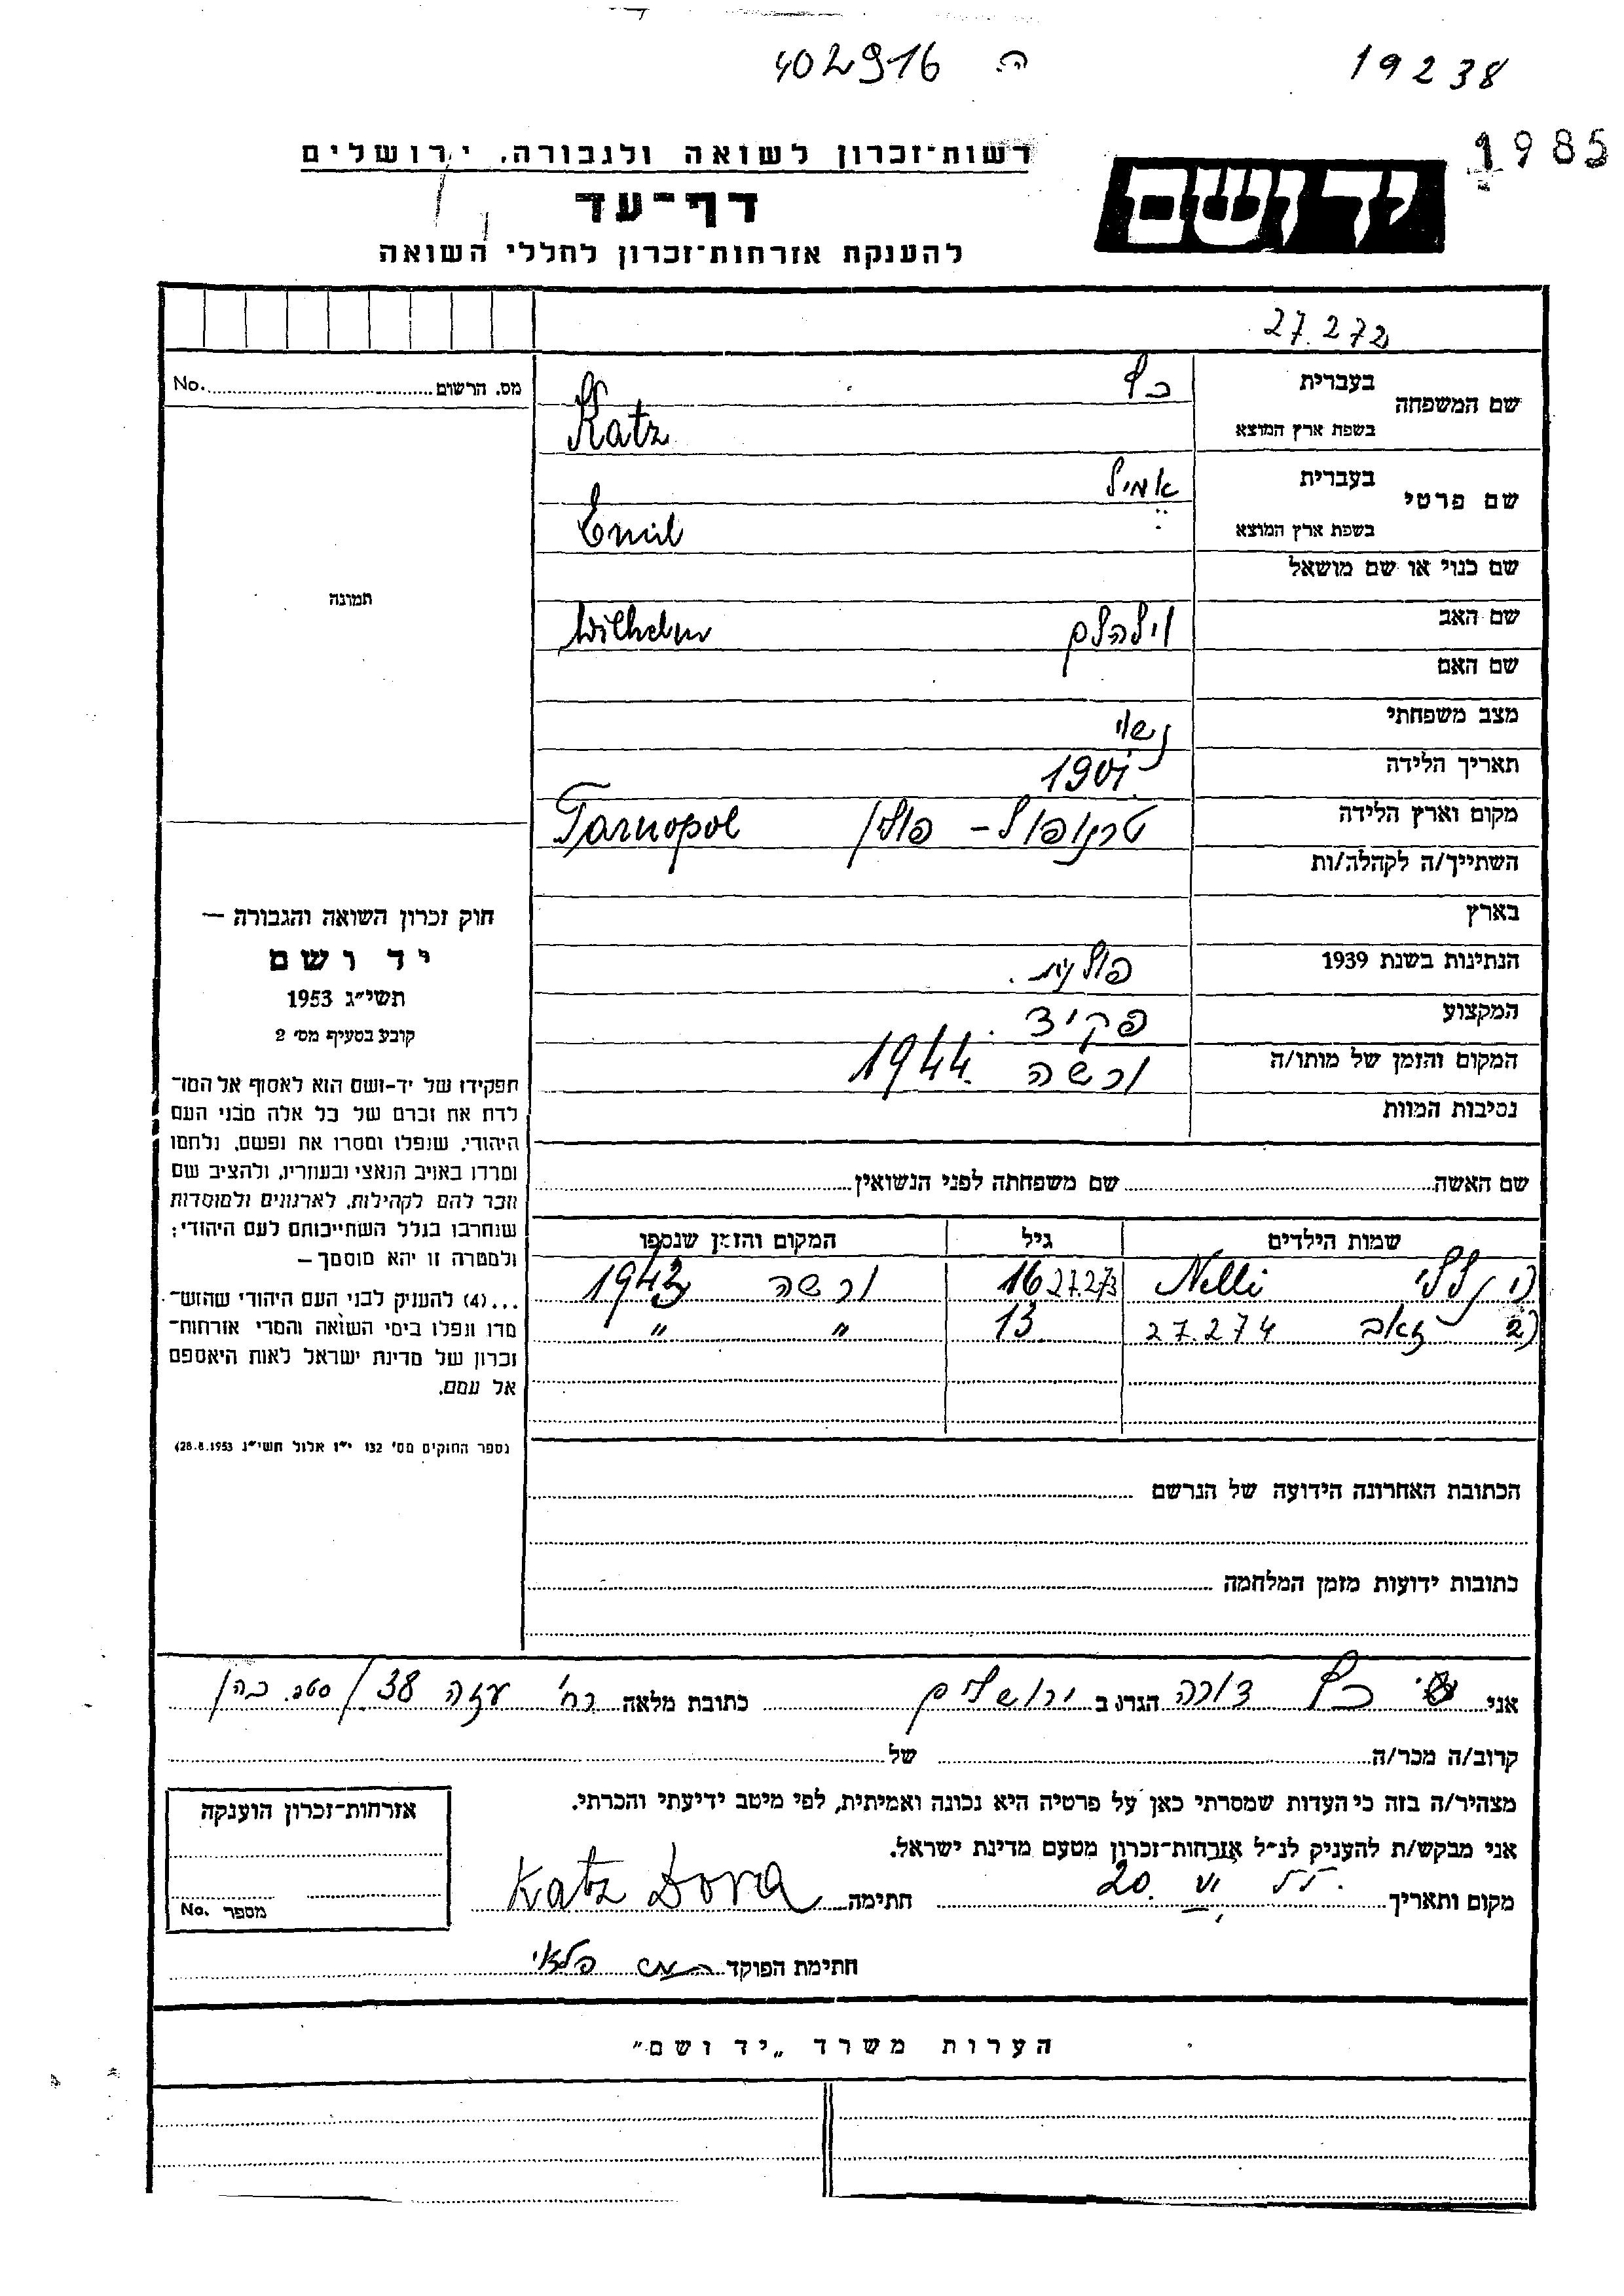 402916 ה.
19238
1985
רשות־זכרון לשואה ולגבורה, ירושלים
דף־עד
להענקת אזרחות־זכרון לחללי השואה
יד ושם
27.272
שם המשפחה
בעברית כץ
בשפת ארץ המוצא Katz
שם פרטי
בעברית אמיל
בשפת ארץ המוצא Emil
שם כנוי או שם מושאל
שם האב וילהלם Wilhelm
שם האם
מצב משפחתי נשוי
תאריך הלידה 1901
מקום וארץ הלידה טרנופול – פולין Tarnopol
השתייך/ה לקהלה/ות
בארץ
הנתינות בשנת 1939 פולנית.
המקצוע פקיד.
המקום והזמן של מותו/ה ורשה 1944.
נסיבות המוות
שם האשה שם משפחתה לפני הנשואין
שמות הילדים גיל המקום והזמן שנספו
1) נלי Nelli 27.273 16 ורשה 1943
2) זאב 27.274 13 " "
הכתובת האחרונה הידועה של הנרשם
כתובות ידועות מזמן המלחמה
מס. הרשום No.
תמונה
חוק זכרון השואה והגבורה —
יד ושם
תשי״ג 1953
קובע בסעיף מס׳ 2
תפקידו של יד-ושם הוא לאסוף אל המו־
לדת את זכרם של כל אלה מבני העם
היהודי, שנפלו ומסרו את נפשם, נלחמו
ומרדו באויב הנאצי ובעוזריו, ולהציב שם
וזכר להם לקהילות, לארגונים ולמוסדות
שנחרבו בגלל השתייכותם לעם היהודי;
ולמטרה זו יהא מוסמך —
...(4) להעניק לבני העם היהודי שהוש־
מדו ונפלו בימי השואה והמרי אזרחות־
זכרון של מדינת ישראל לאות היאספם
אל עמם.
(ספר החוקים מס׳ 132 י״ז אלול תשי״ג 28.8.1953)
אני כץ דורה הגר/ה ב ירושלים כתובת מלאה רח׳ עזה 38/
קרוב/ה מכר/ה של
מצהיר/ה בזה כי העדות שמסרתי כאן על פרטיה היא נכונה ואמיתית, לפי מיטב ידיעתי והכרתי.
אני מבקש/ת להעניק לנ״ל אזרחות־זכרון מטעם מדינת ישראל.
מקום ותאריך 20. VI חתימה Katz Dora
חתימת הפוקד
אזרחות־זכרון הוענקה
מספר No.
הערות משרד „יד ושם״